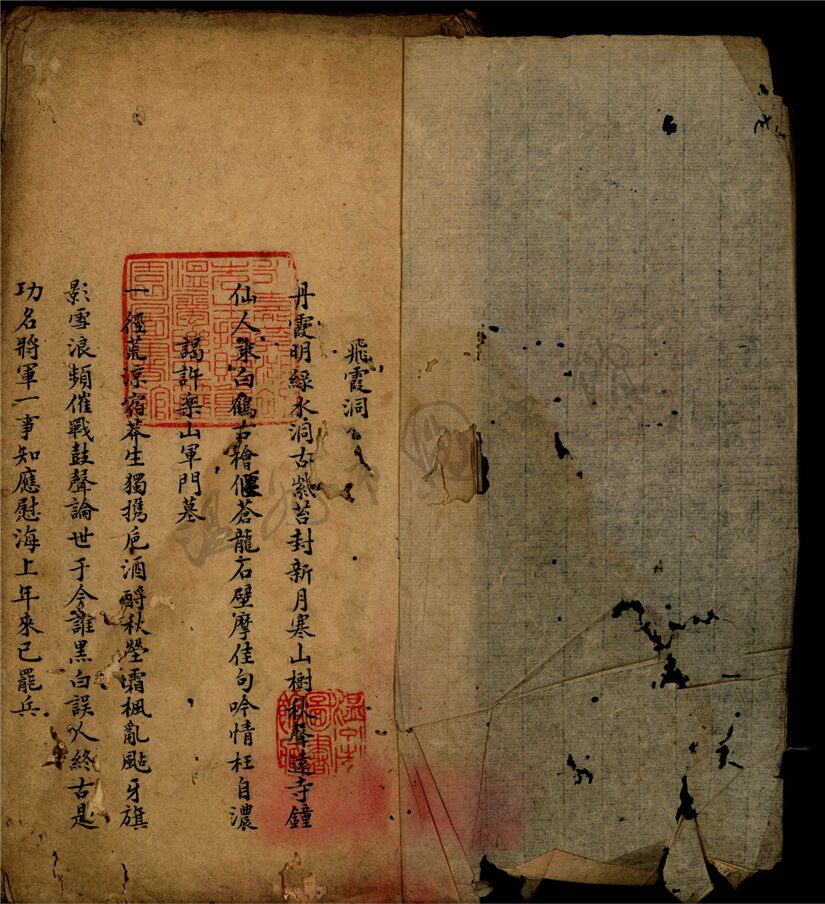 飛霞洞
丹霞明綠水洞古紫苔封新月寒山樹秋聲遠寺鐘
仙人乘白鶴古檜偃蒼龍石壁摩佳句吟情枉自濃
謁許樂山軍門墓
一徑荒涼宿莽生獨携卮酒酹秋塋霜楓亂颭牙旗
影雪浪頻催戰鼓聲論世于今誰黑白誤人終古是
功名將軍一事知應慰海上年來已罷兵